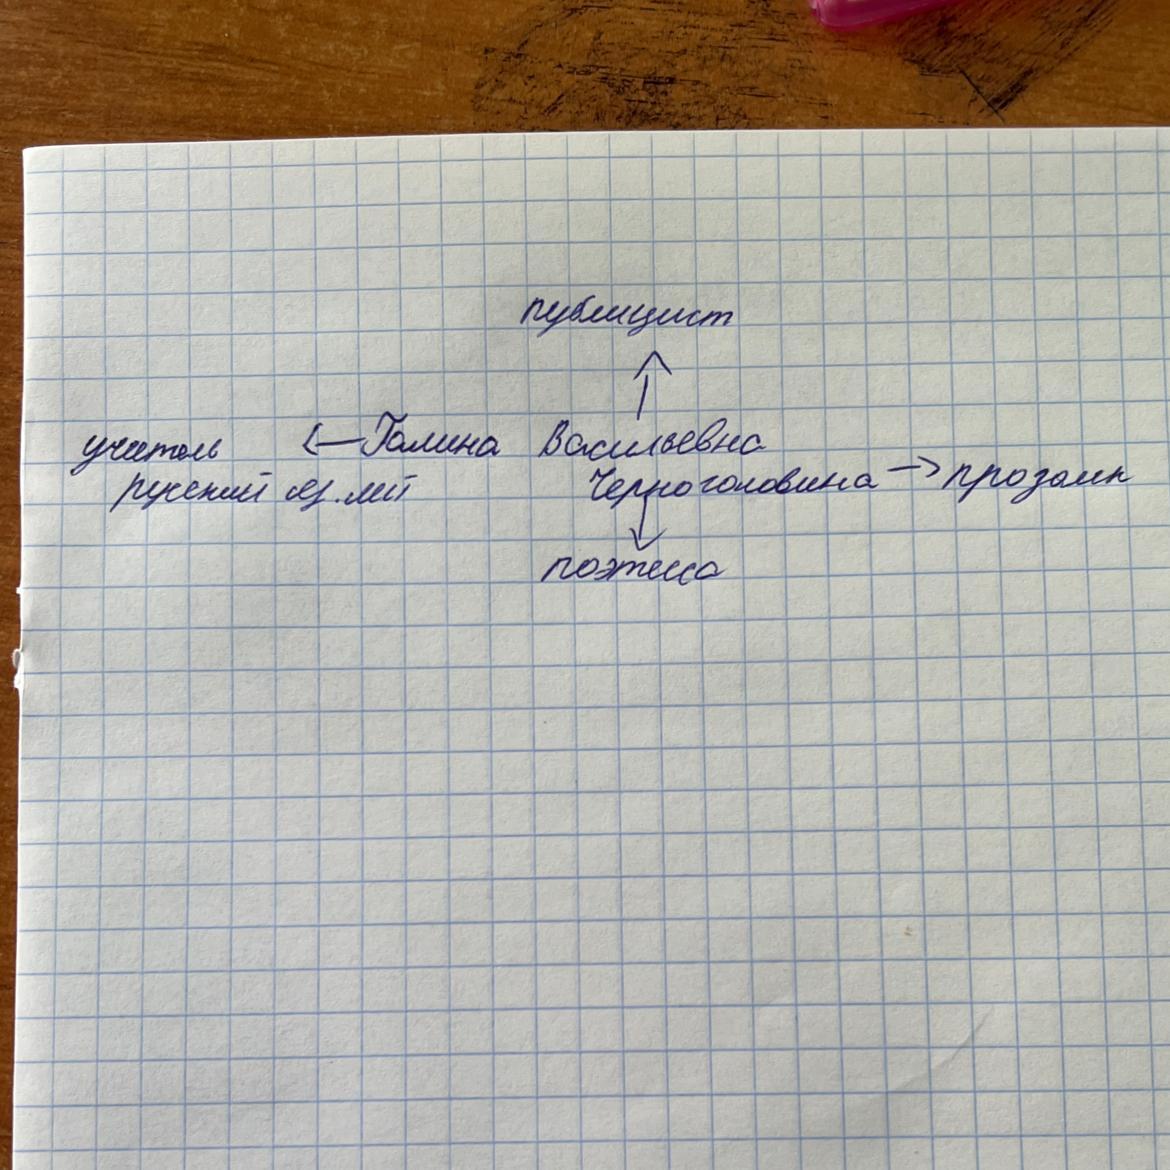 публицист
учитель ← Галина Васильевна
русский яз. лит Черноголовина → прозаик
поэтесса